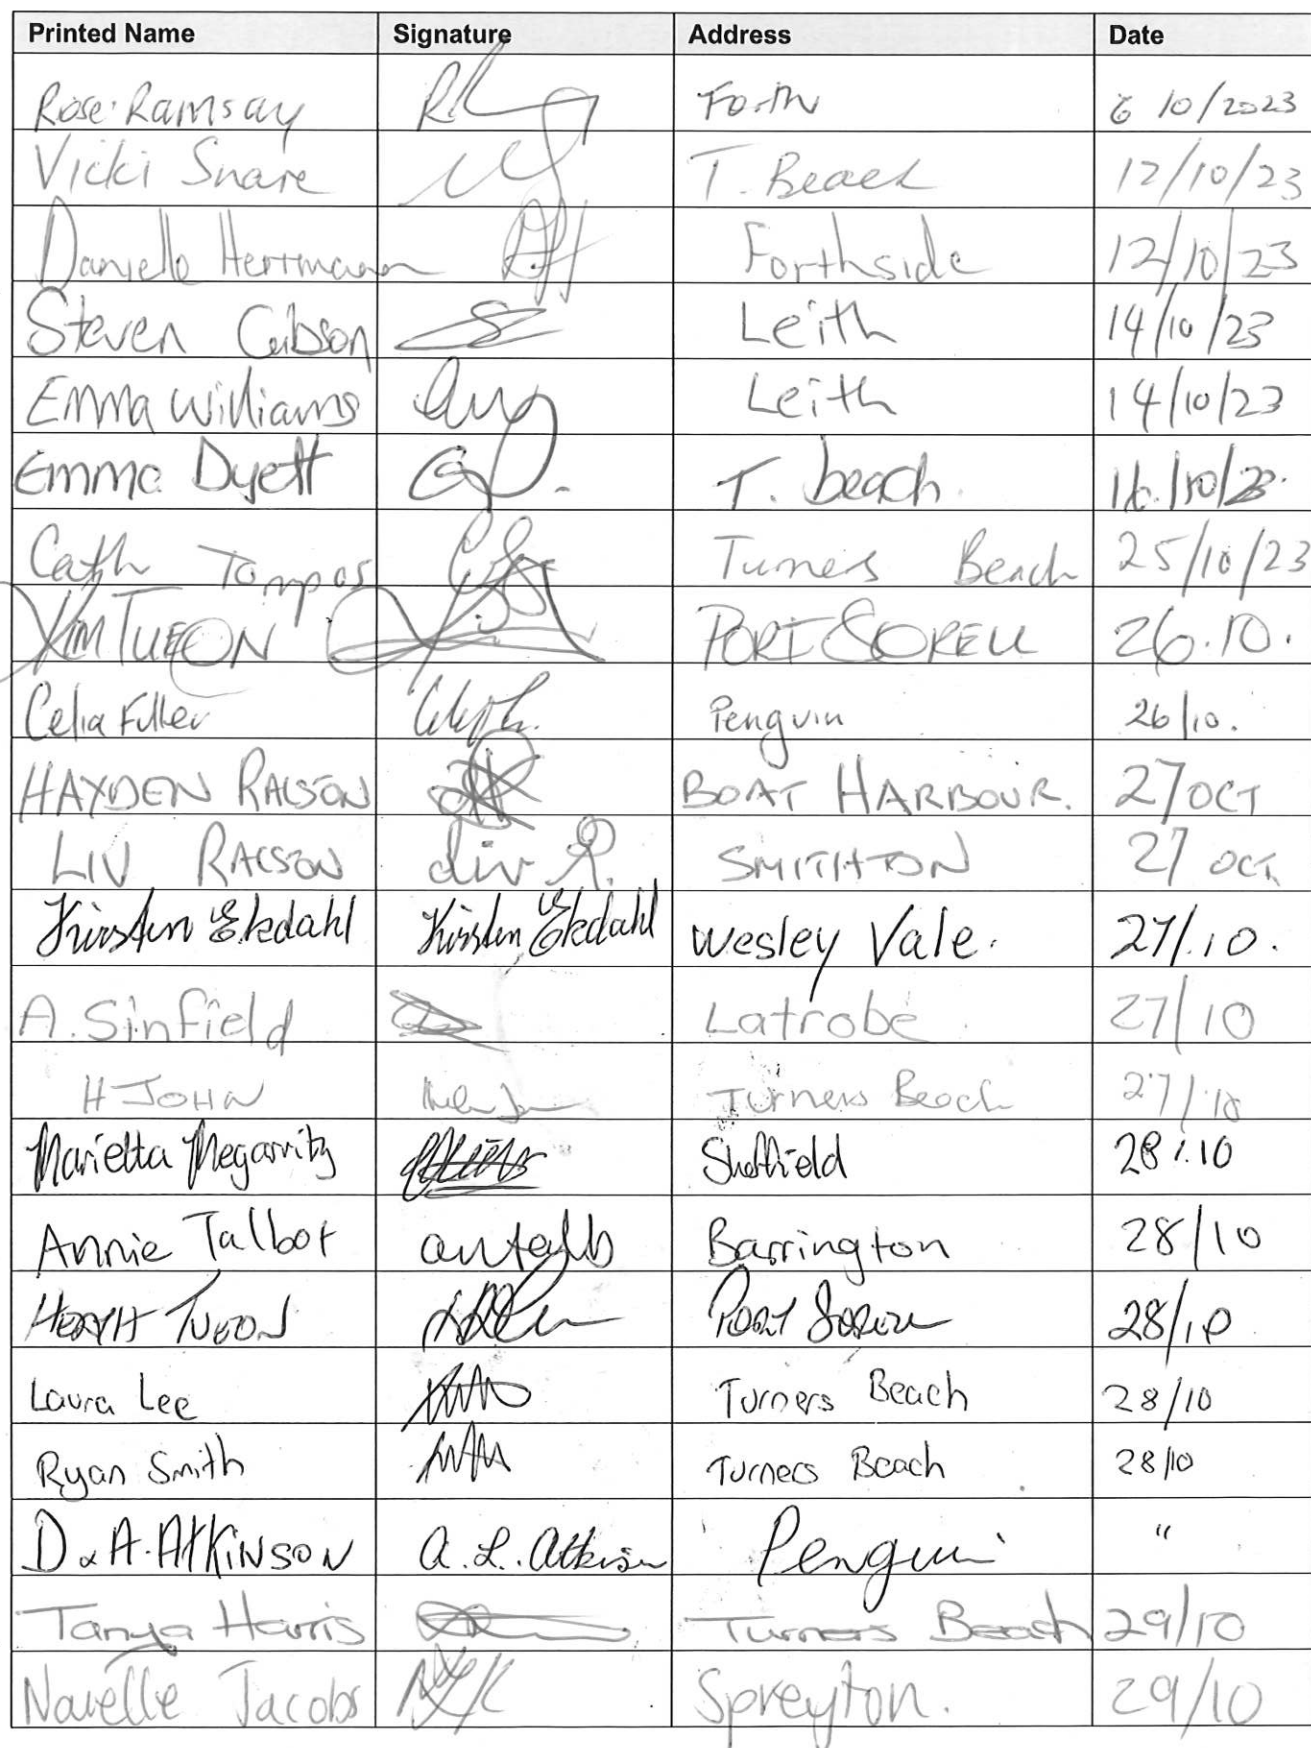 Printed Name Signature Address Date
Rose Ramsay Forth 6 10/2023
Vicki Snare T. Beach 12/10/23
Danielle Herrmann Forthside 12/10/23
Steven Gibson Leith 14/10/23
Emma Williams Leith 14/10/23
Emma Dyett T. beach. 16/10/23.
Cath Tompos Turners Beach 25/10/23
Kim TUEON PORT SORELL 26.10.
Celia Fuller Penguin 26/10.
HAYDEN RALSON BOAT HARBOUR. 27 OCT
LIV RALSON Liv R. SMITHTON 27 OCT
Kirsten Ekdahl Kirsten Ekdahl Wesley Vale. 27/.10.
A. Sinfield Latrobe 27/10
H JOHN Turners Beach 27/10
Marietta Megarrity Sheffield 28/.10
Annie Talbot Barrington 28/10
TUEON PORT SORELL 28/10
Laura Lee Turners Beach 28/10
Ryan Smith Turners Beach 28/10
D & A. ATKINSON A. L. Atkinson Penguin "
Tanya Harris Turners Beach 29/10
Narelle Jacobs Spreyton. 29/10